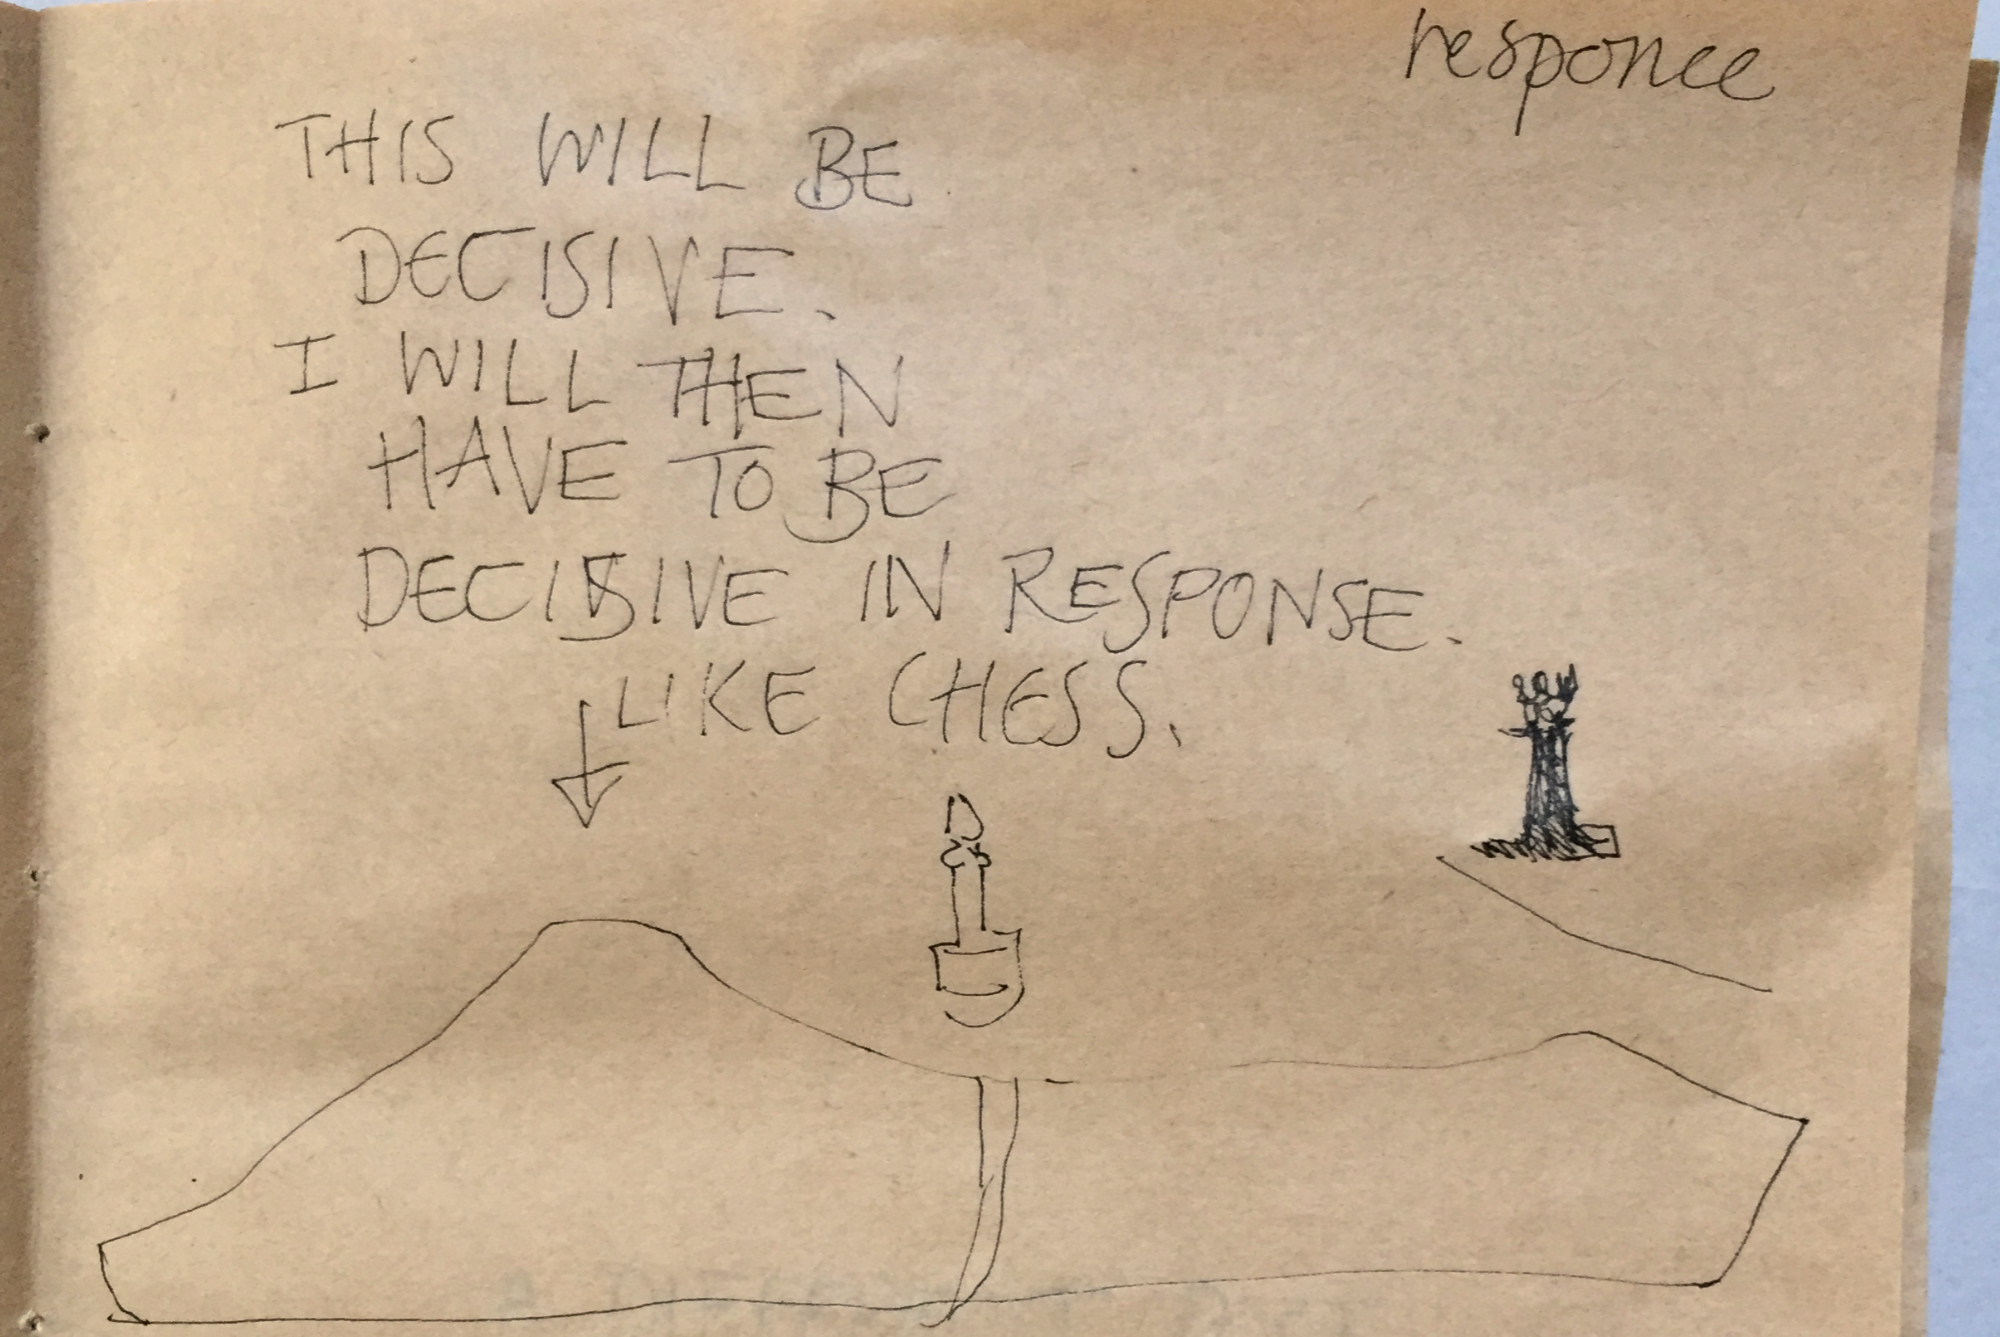 responce
THIS WILL BE
DECISIVE.
I WILL THEN
HAVE TO BE
DECISIVE IN RESPONSE.
LIKE CHESS.